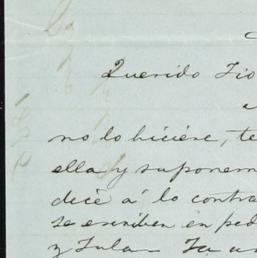 Querido Tio
no lo hiciere, te
ella y suponem
dice á lo contra
se escriben en ped
y Tula